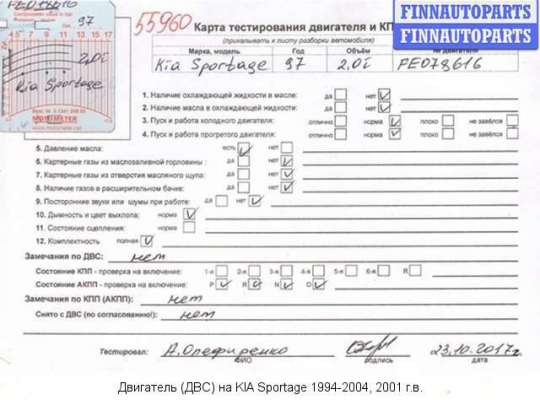 PE078616
97
4.5 7 10 15 17
2.0i
Kia Sportage
MOTOMETER
55960
FINNAUTOPARTS
FINNAUTOPARTS
Карта тестирования двигателя и КП
(прикалывать к листу разборки автомобиля)
Марка, модель Год Объём № двигателя
Kia Sportage 97 2.0i PE078616
1. Наличие охлаждающей жидкости в масле: да нет
2. Наличие масла в охлаждающей жидкости: да нет
3. Пуск и работа холодного двигателя: отлично норма плохо не завёлся
4. Пуск и работа прогретого двигателя: отлично норма плохо не завёлся
5. Давление масла: есть нет
6. Картерные газы из маслозаливной горловины: да нет
7. Картерные газы из отверстия масляного щупа: да нет
8. Наличие газов в расширительном бачке: да нет
9. Посторонние звуки или шумы при работе: да нет
10. Дымность и цвет выхлопа: норма
11. Состояние сцепления: норма
12. Комплектность полная
Замечания по ДВС: нет
Состояние КПП - проверка на включение: 1-я 2-я 3-я 4-я 5-я 6-я R
Состояние АКПП - проверка на включение: P R N D
Замечания по КПП (АКПП): нет
Снято с ДВС (по согласованию!): нет
Тестировал: А.Олефиренко 23.10.2017г.
ФИО подпись дата
Двигатель (ДВС) на KIA Sportage 1994-2004, 2001 г.в.